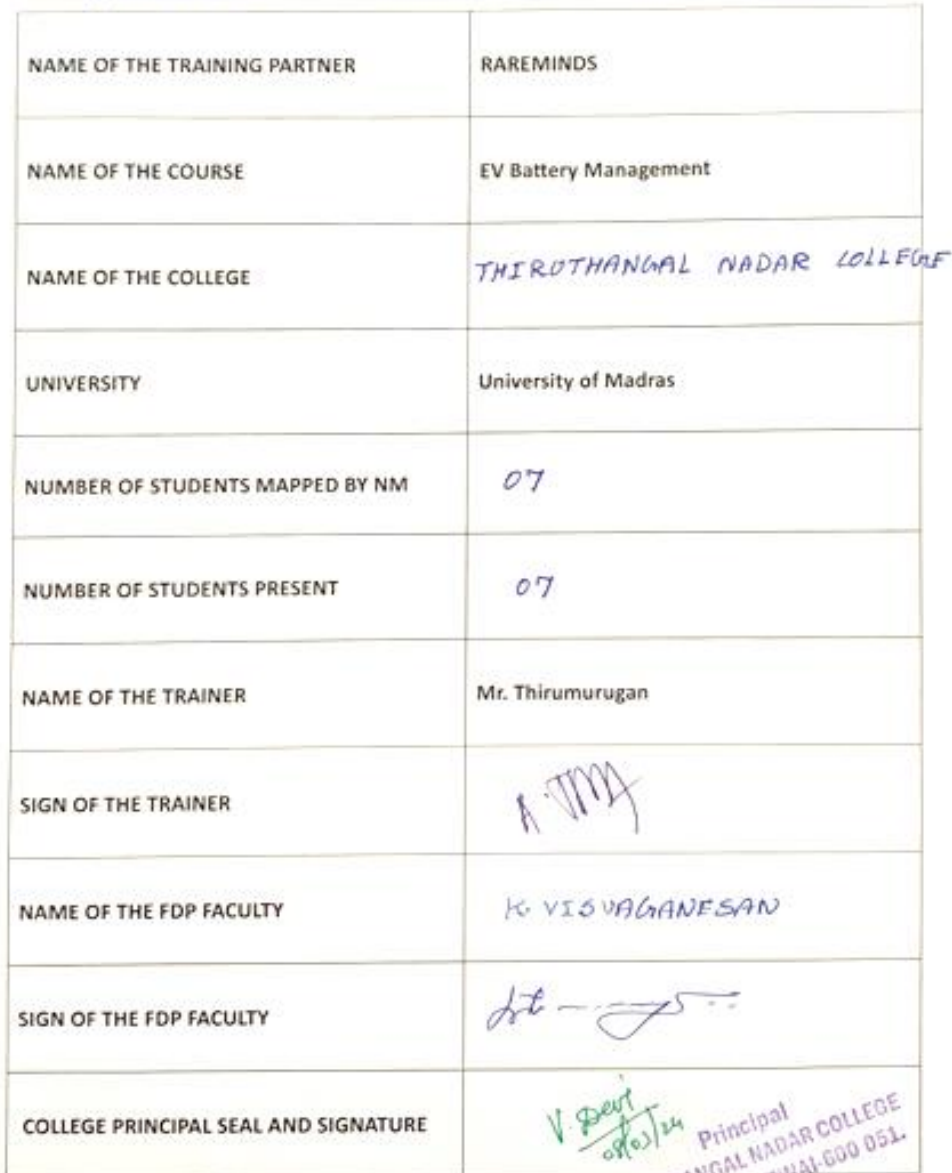 NAME OF THE TRAINING PARTNER RAREMINDS
NAME OF THE COURSE EV Battery Management
NAME OF THE COLLEGE THIRUTHANGAL NADAR COLLEGE
UNIVERSITY University of Madras
NUMBER OF STUDENTS MAPPED BY NM 07
NUMBER OF STUDENTS PRESENT 07
NAME OF THE TRAINER Mr. Thirumurugan
SIGN OF THE TRAINER
NAME OF THE FDP FACULTY K. VISVAGANESAN
SIGN OF THE FDP FACULTY
COLLEGE PRINCIPAL SEAL AND SIGNATURE V. Devi
08/03/24
Principal
NGAL NADAR COLLEGE
NAI-600 051.